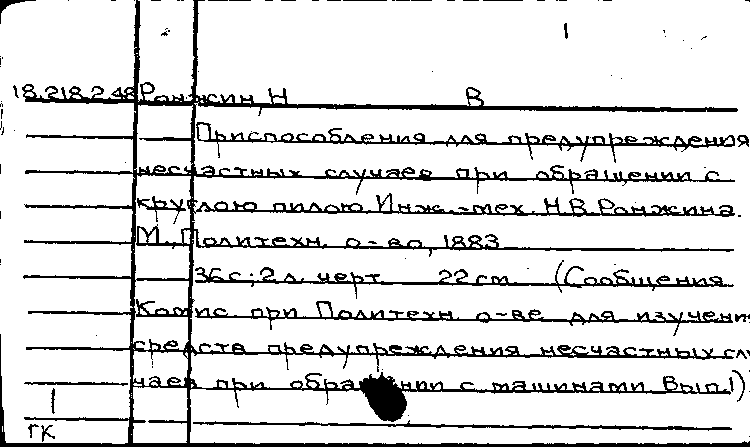 1
18.218.2.48 Ранжин, Н В
Приспособления для предупреждения
несчастных случаев при обращении с
круглою пилою. Инж.-мех. Н.В. Ранжина.
М., Политехн. о-во, 1883
36 с; 2 л. черт. 22 cm. (Сообщения
Комис. при Политехн. о-ве для изучени
средств предупреждения несчастных слу
чаев при обращении с машинами. Вып. 1)
1
ГК